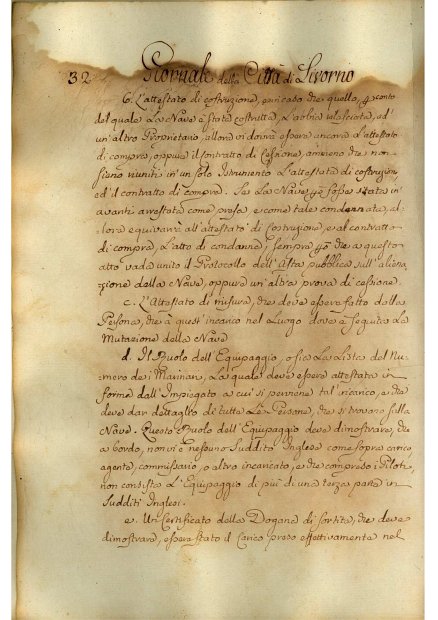 32 Giornale della Città di Livorno
b. L'attestato di costruzione, in caso che quello, p conto
del quale La Nave è stata costrutta, L'abbia rilasciata, ad
un'altro Proprietario, allora vi dovrà essere ancora L'attestato
di compra, oppure il Contratto di Cessione, ameno che non
sieno riuniti in un solo Istrumento L'attestato di costruzion
ed il contratto di compra. Se La Nave p sasse stata in
avanti arrestata come presa, e come tale condennata, al
lora equivarrà all'attestato di Costruzione, e al contratto
di compra, L'atto di condanna, sempre p che a questo
atto vada unito il Protocollo dell'Asta pubblica sull'aliena
zione della Nave, oppure un'altra prova di cessione.
c. L'Attestato di misura, che deve essere fatto dalla
Persona, che à quest'incarico nel Luogo dove è seguita La
Mutazione della Nave
d. Il Ruolo dell'Equipaggio, o sia La Lista del Nu-
mero de' i Marinari, La quale deve essere attestata in
forma dall'Impiegato a cui si perviene tal'incarico, e che
deve dar dettaglio di tutte Le Persone, che si trovano sulla
Nave. Questo Ruolo dell'Equipaggio deve dimostrare, che
a bordo, non vi è nessuno Suddito Inglese come sopra carico,
agente, commissario, o altro incaricato, e che compreso i Piloti,
non consista L'Equipaggio di più di una terza parte in
Sudditi Inglesi.
e. Un Certificato della Dogana di sortita, che deve
dimostrare, essere stato il Carico preso effettivamente nel